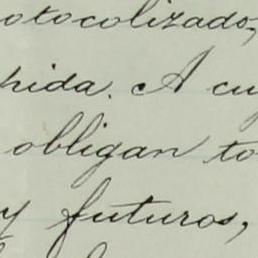 otocolizado,
hida. A cu
obligan to
y futuros,